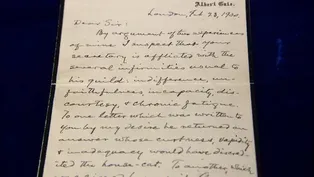 Albert Gate.
London, Feb. 23, 1900.
Dear Sir:
By argument of his experiences
of mine I suspect that your
secretary is afflicted with the
several infirmities usual to
his guild: indifference, un-
faithfulness, incapacity, dis-
courtesy, & chronic fatigue.
To one letter which was written to
you by my desire he returned an
answer whose curtness, vapidity
& inadequacy would have discred-
ited the house-cat. To another which